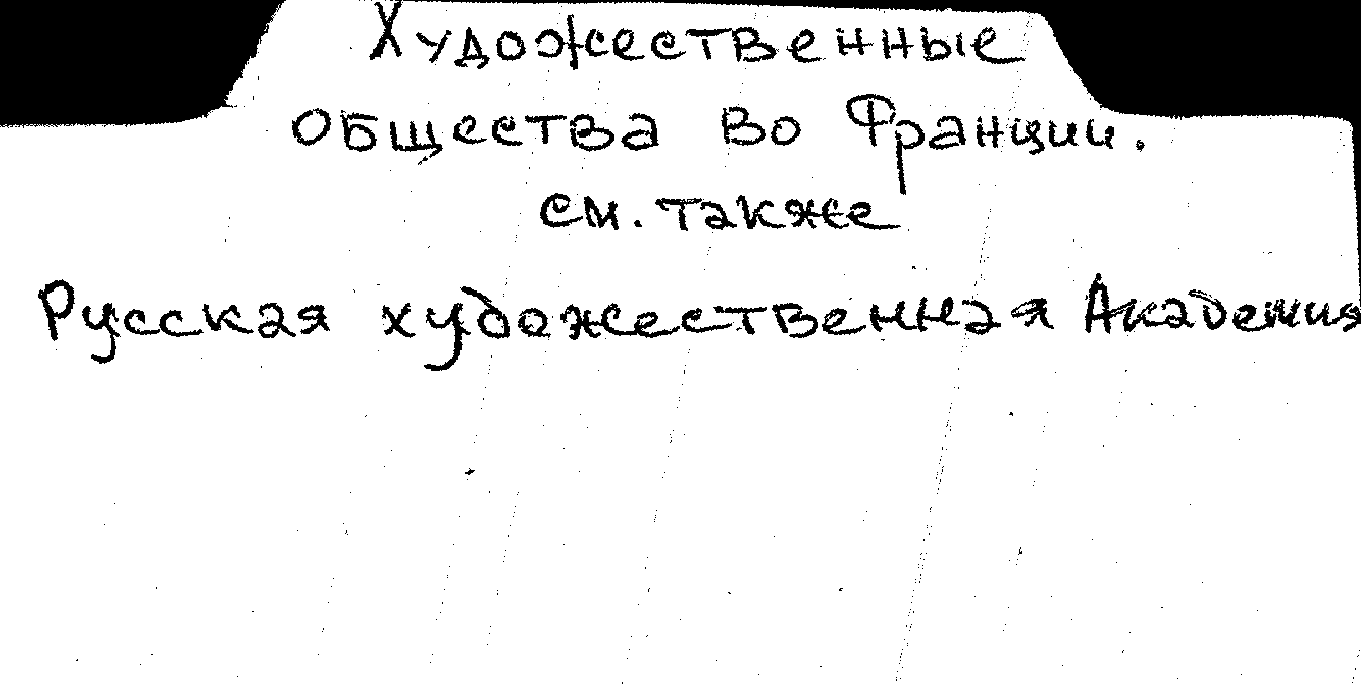 Художественные
общества во Франции.
см. также
Русская художественная Академия